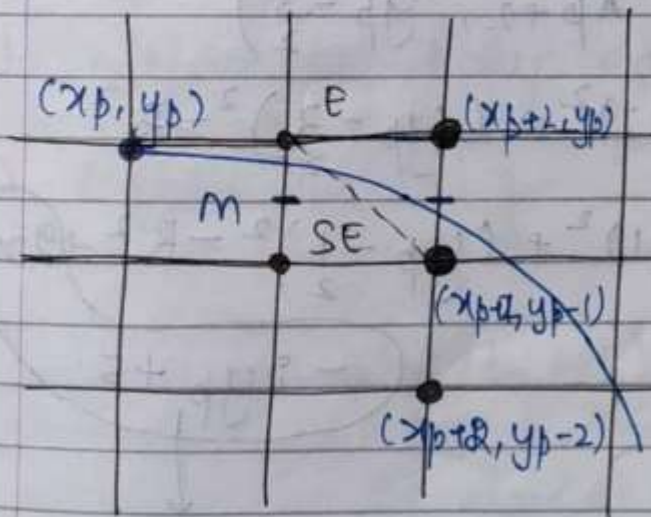 E
(xp, yp)
(xp+2, yp)
M
SE
(xp+2, yp-1)
(xp+2, yp-2)